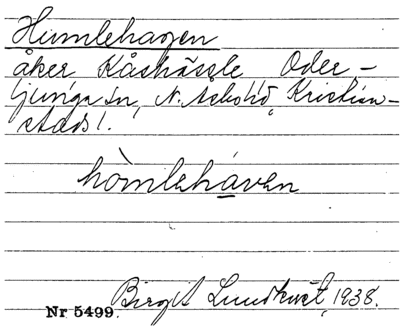 Humlehagen
åker Kåshässle Oder-
ljunga sn, N. Åsbo hd, Kristian-
stads l.
hòmlehåven
Birgit Lundkvist 1938.
Nr 5499.